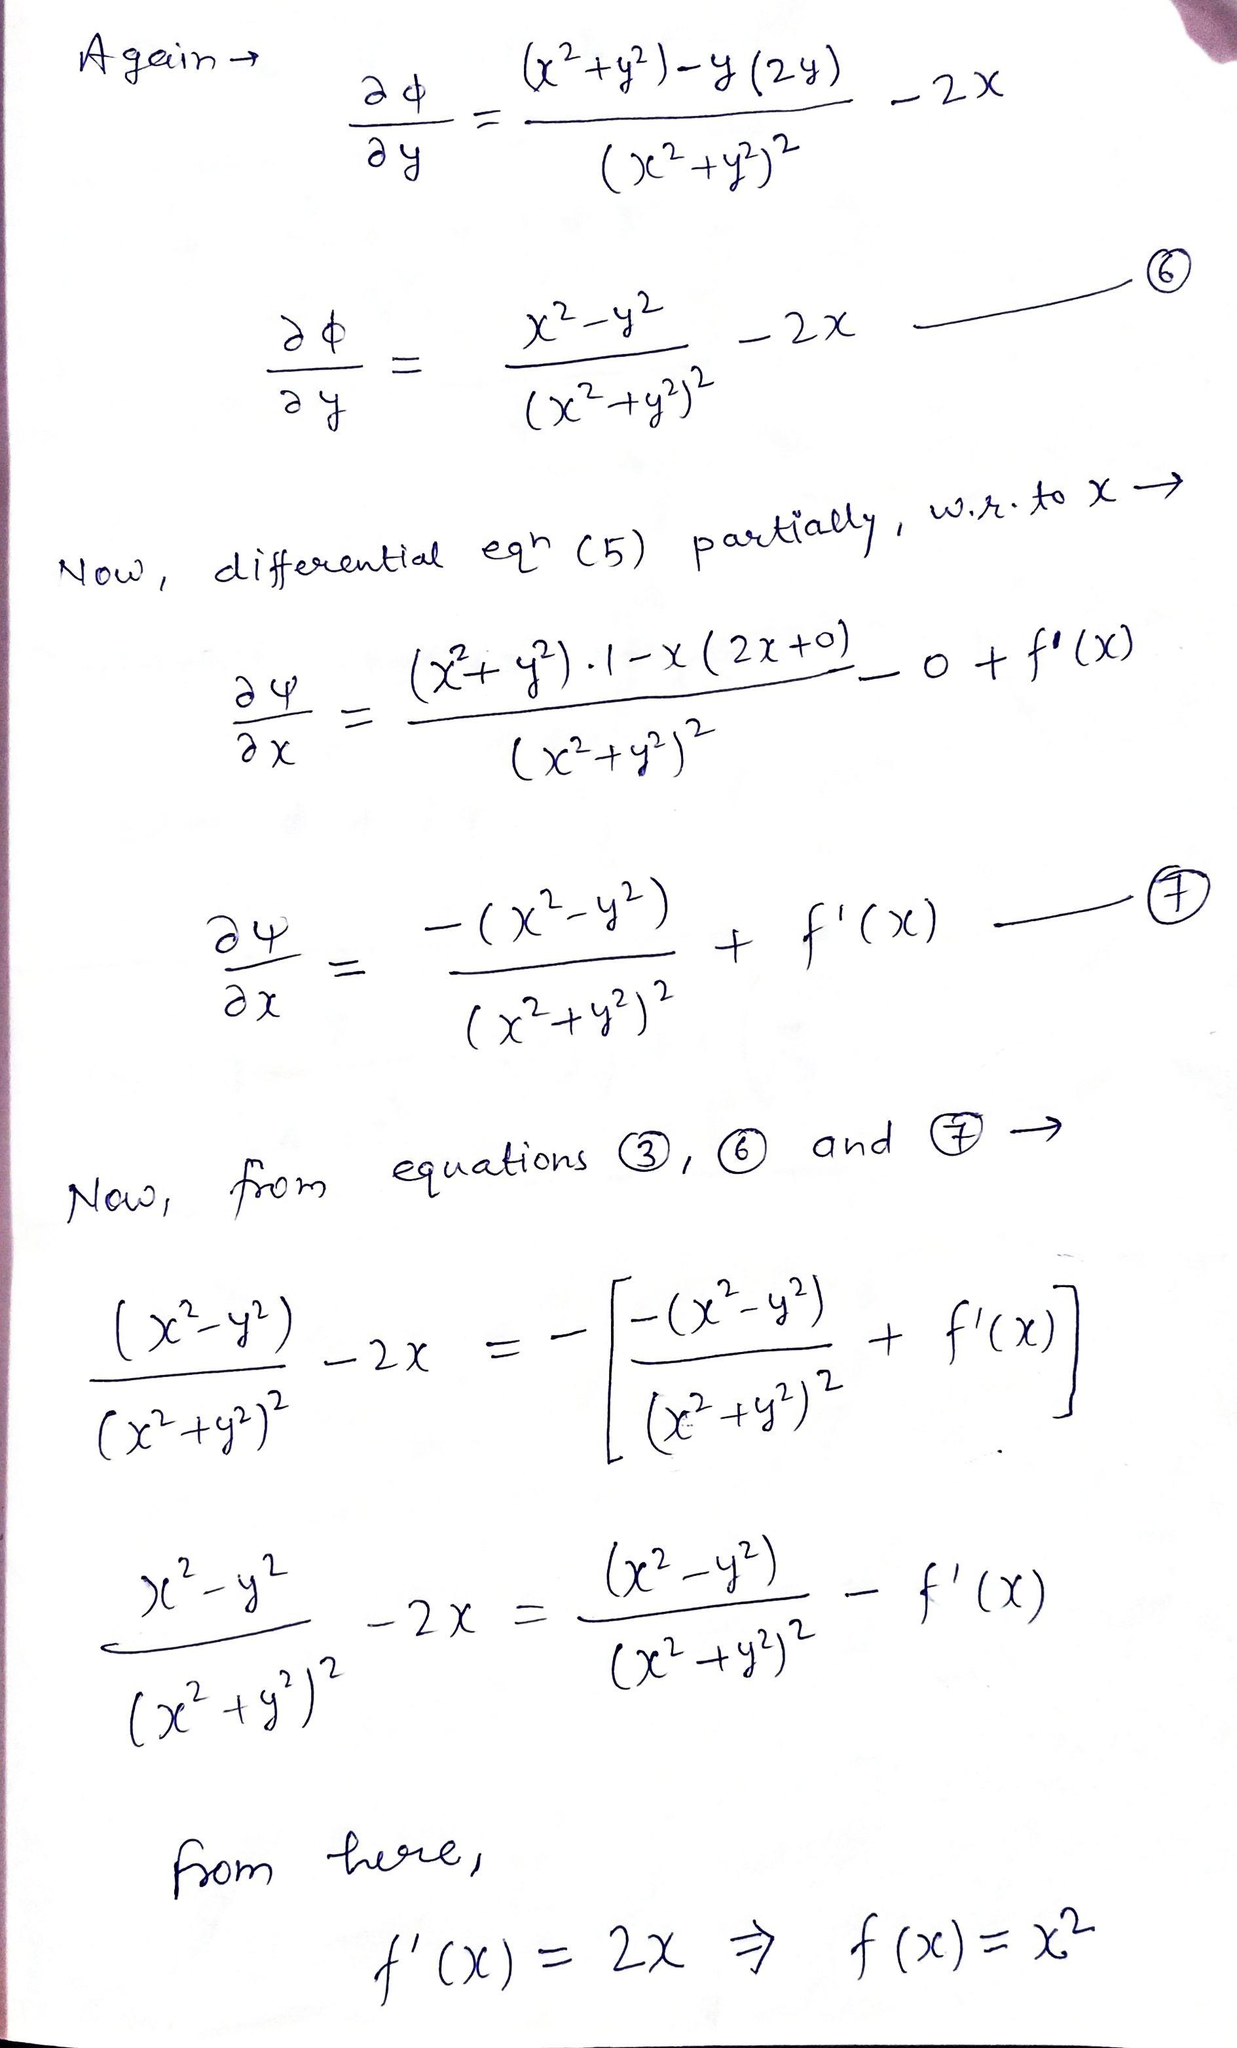 Again →
∂ϕ/∂y = ((x²+y²)-y(2y))/(x²+y²)² - 2x
∂ϕ/∂y = (x²-y²)/(x²+y²)² - 2x —— ⑥
Now, differential eqn (5) partially, w.r. to x →
∂ψ/∂x = ((x²+y²).1-x(2x+0))/(x²+y²)² - 0 + f'(x)
∂ψ/∂x = -(x²-y²)/(x²+y²)² + f'(x) —— ⑦
Now, from equations ③, ⑥ and ⑦ →
(x²-y²)/(x²+y²)² - 2x = -[-(x²-y²)/(x²+y²)² + f'(x)]
x²-y²/(x²+y²)² - 2x = (x²-y²)/(x²+y²)² - f'(x)
from here,
f'(x) = 2x ⇒ f(x) = x²